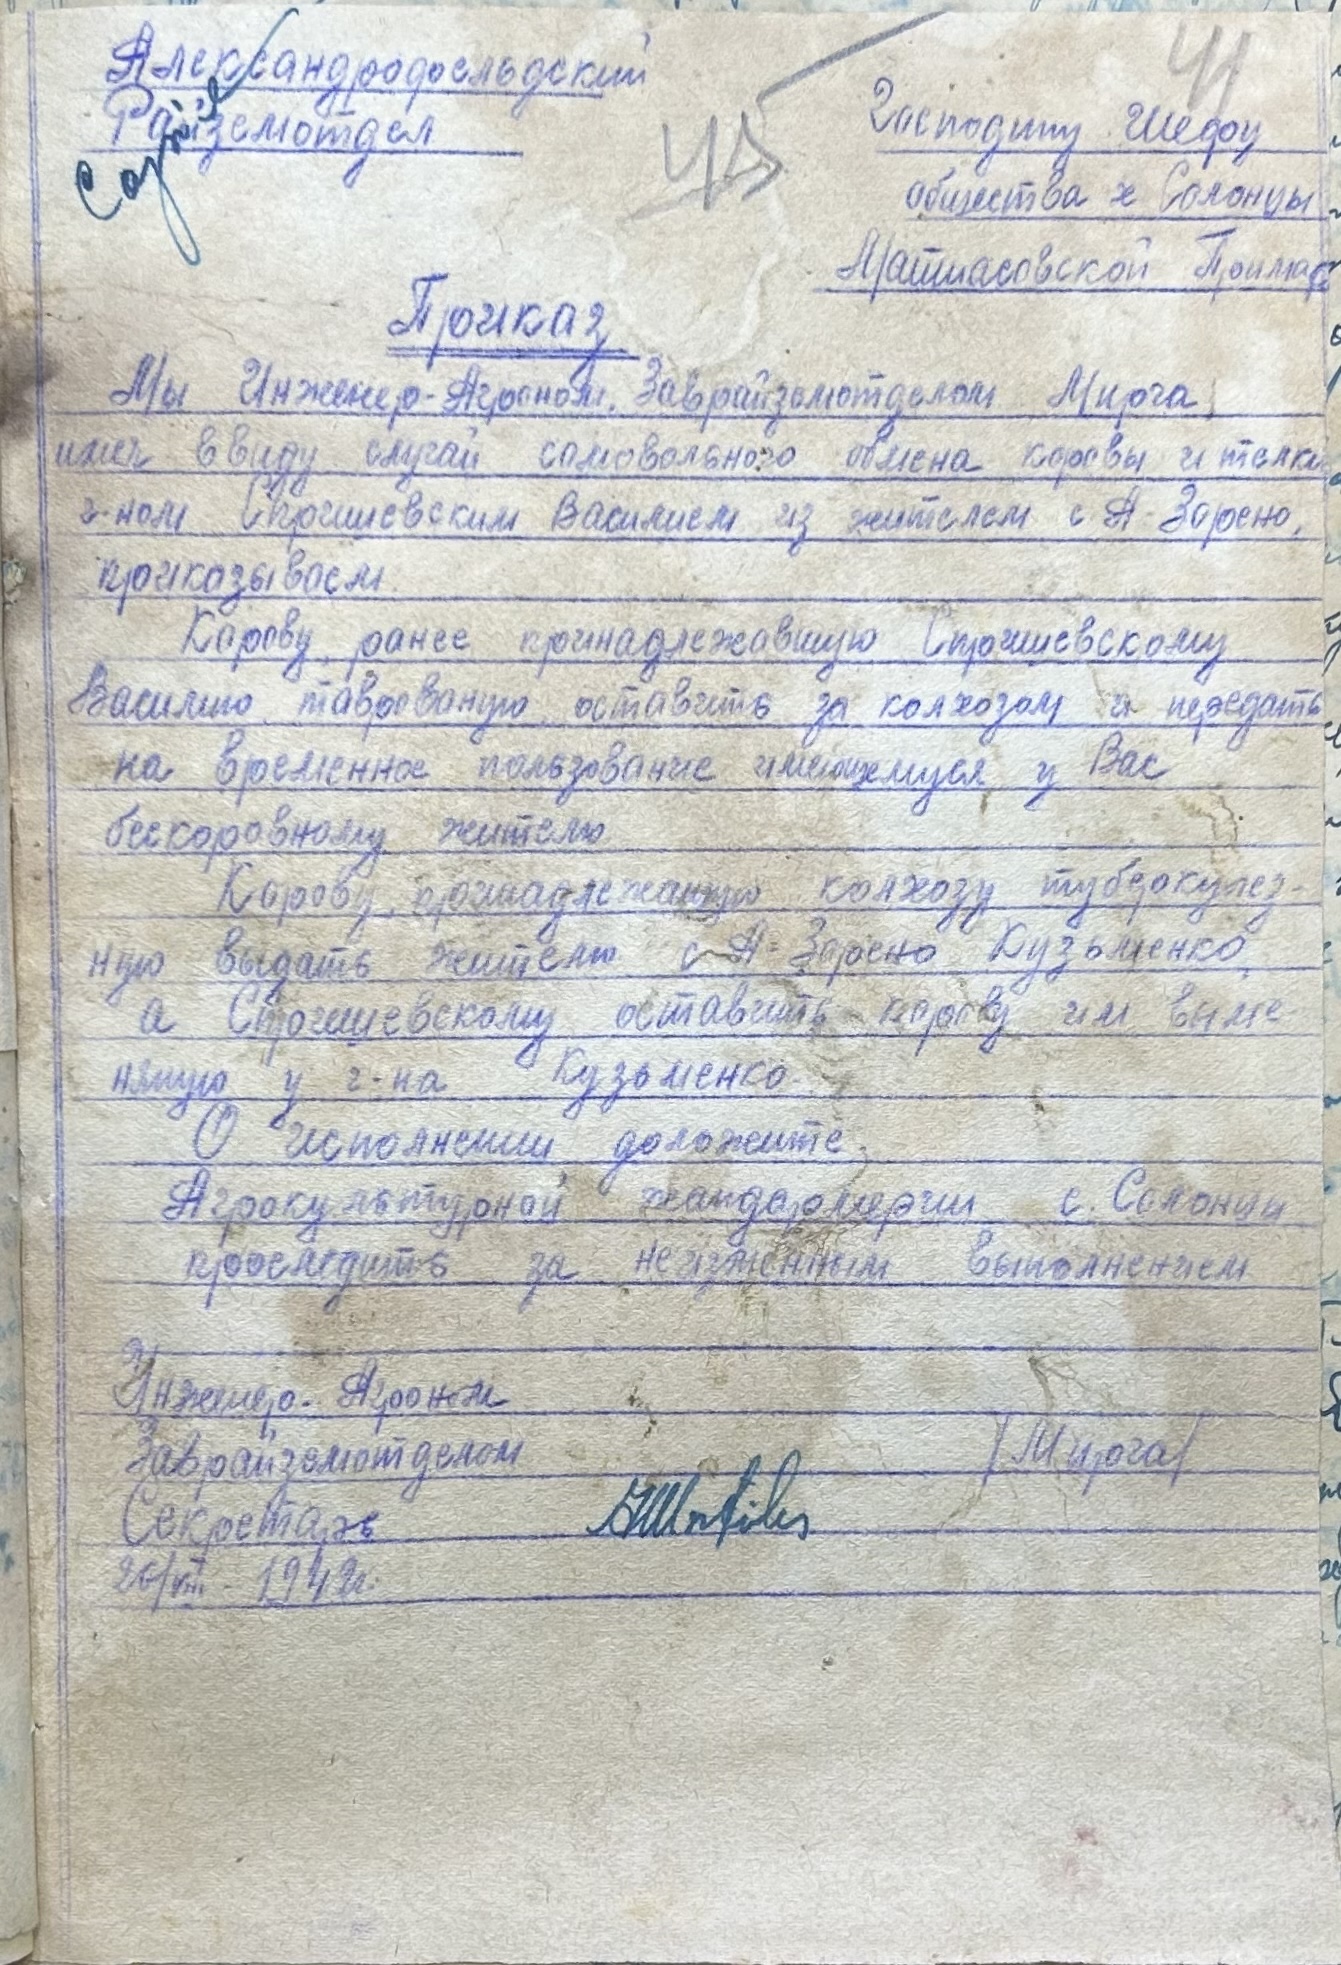 Александродольдский
Райземотдел
45
41
Господину Шефу
общества х Солонцы
Матиасовской Примар
Приказ
Мы Инженер-Агроном, Заврайземотделом Мирга,
имея ввиду случай самовольного обмена коровы и телки
г-ном Спришевским Василием из жителем с А-Зорено,
приказываем.
Карову, ранее принадлежавшую Спришевскому
Василию таврованую оставить за колхозом и передать
на временное пользование имеющемуся у Вас
бескоровному жителю
Карову, принадлежащую колхозу туберкулез-
ную выдать жителю с А-Зорено Кузьменко,
а Спришевскому оставить корову им выме-
няную у г-на Кузьменко.
О исполнении доложите.
Агрокультурной жандармерии с. Солонцы
проследить за неизменным выполнением
Инженер-Агроном
Заврайземотделом /Мирга/
Секретарь
26/VIII - 1942г.